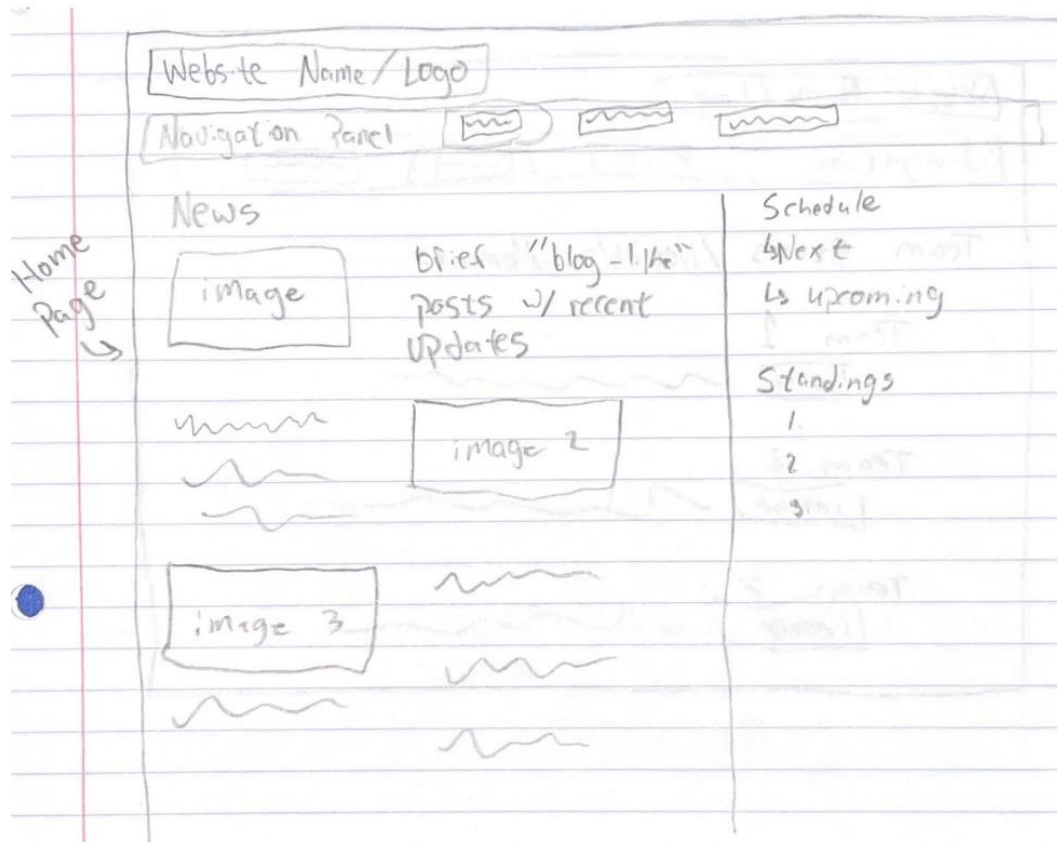 Website Name/Logo
Navigation Panel
News
image
brief "blog-like"
posts w/ recent
updates
image 2
image 3
Schedule
↳Next
↳ upcoming
Standings
1.
2
3
Home
Page